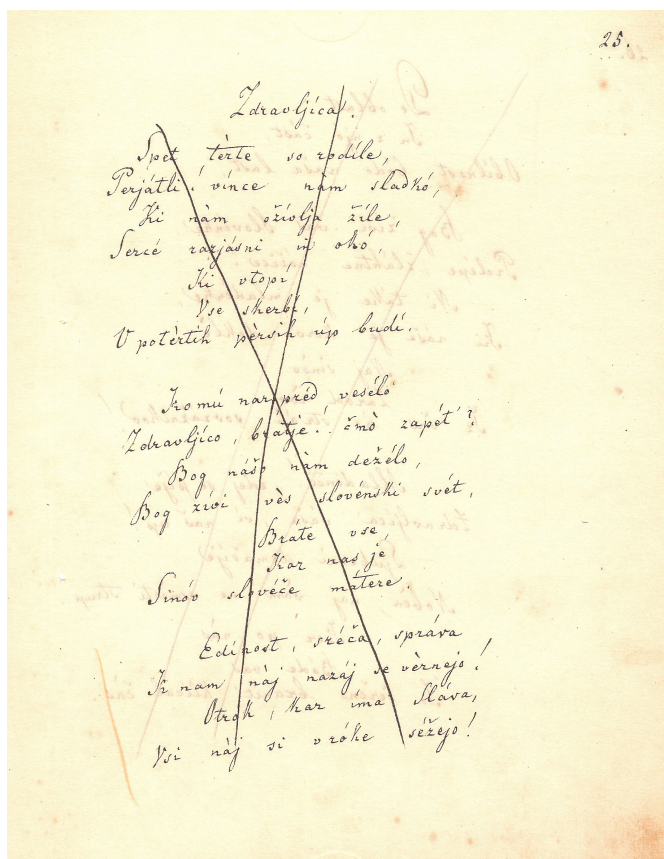 25.
Zdravljíca.
Spet tèrte so rodíle,
Perjátli! vínce nàm sladkó,
Ki nàm ožívlja žíle,
Sercé razjásni in okó,
Ki vtopí
Vse skerbí,
V potèrtih pèrsih úp budí.
Komú narpréd veselo
Zdravljíco, bratje! čmò zapét'?
Bog nášo nàm dežélo,
Bog živi vès slovénski svét,
Bráte vse,
Kar nas jé,
Sinóv slovéče mátere.
Edínost, sréča, správa
K nam nàj nazáj se vèrnejo!
Otrók, kar ima Sláva,
Vsi nàj si v róke séžejo!